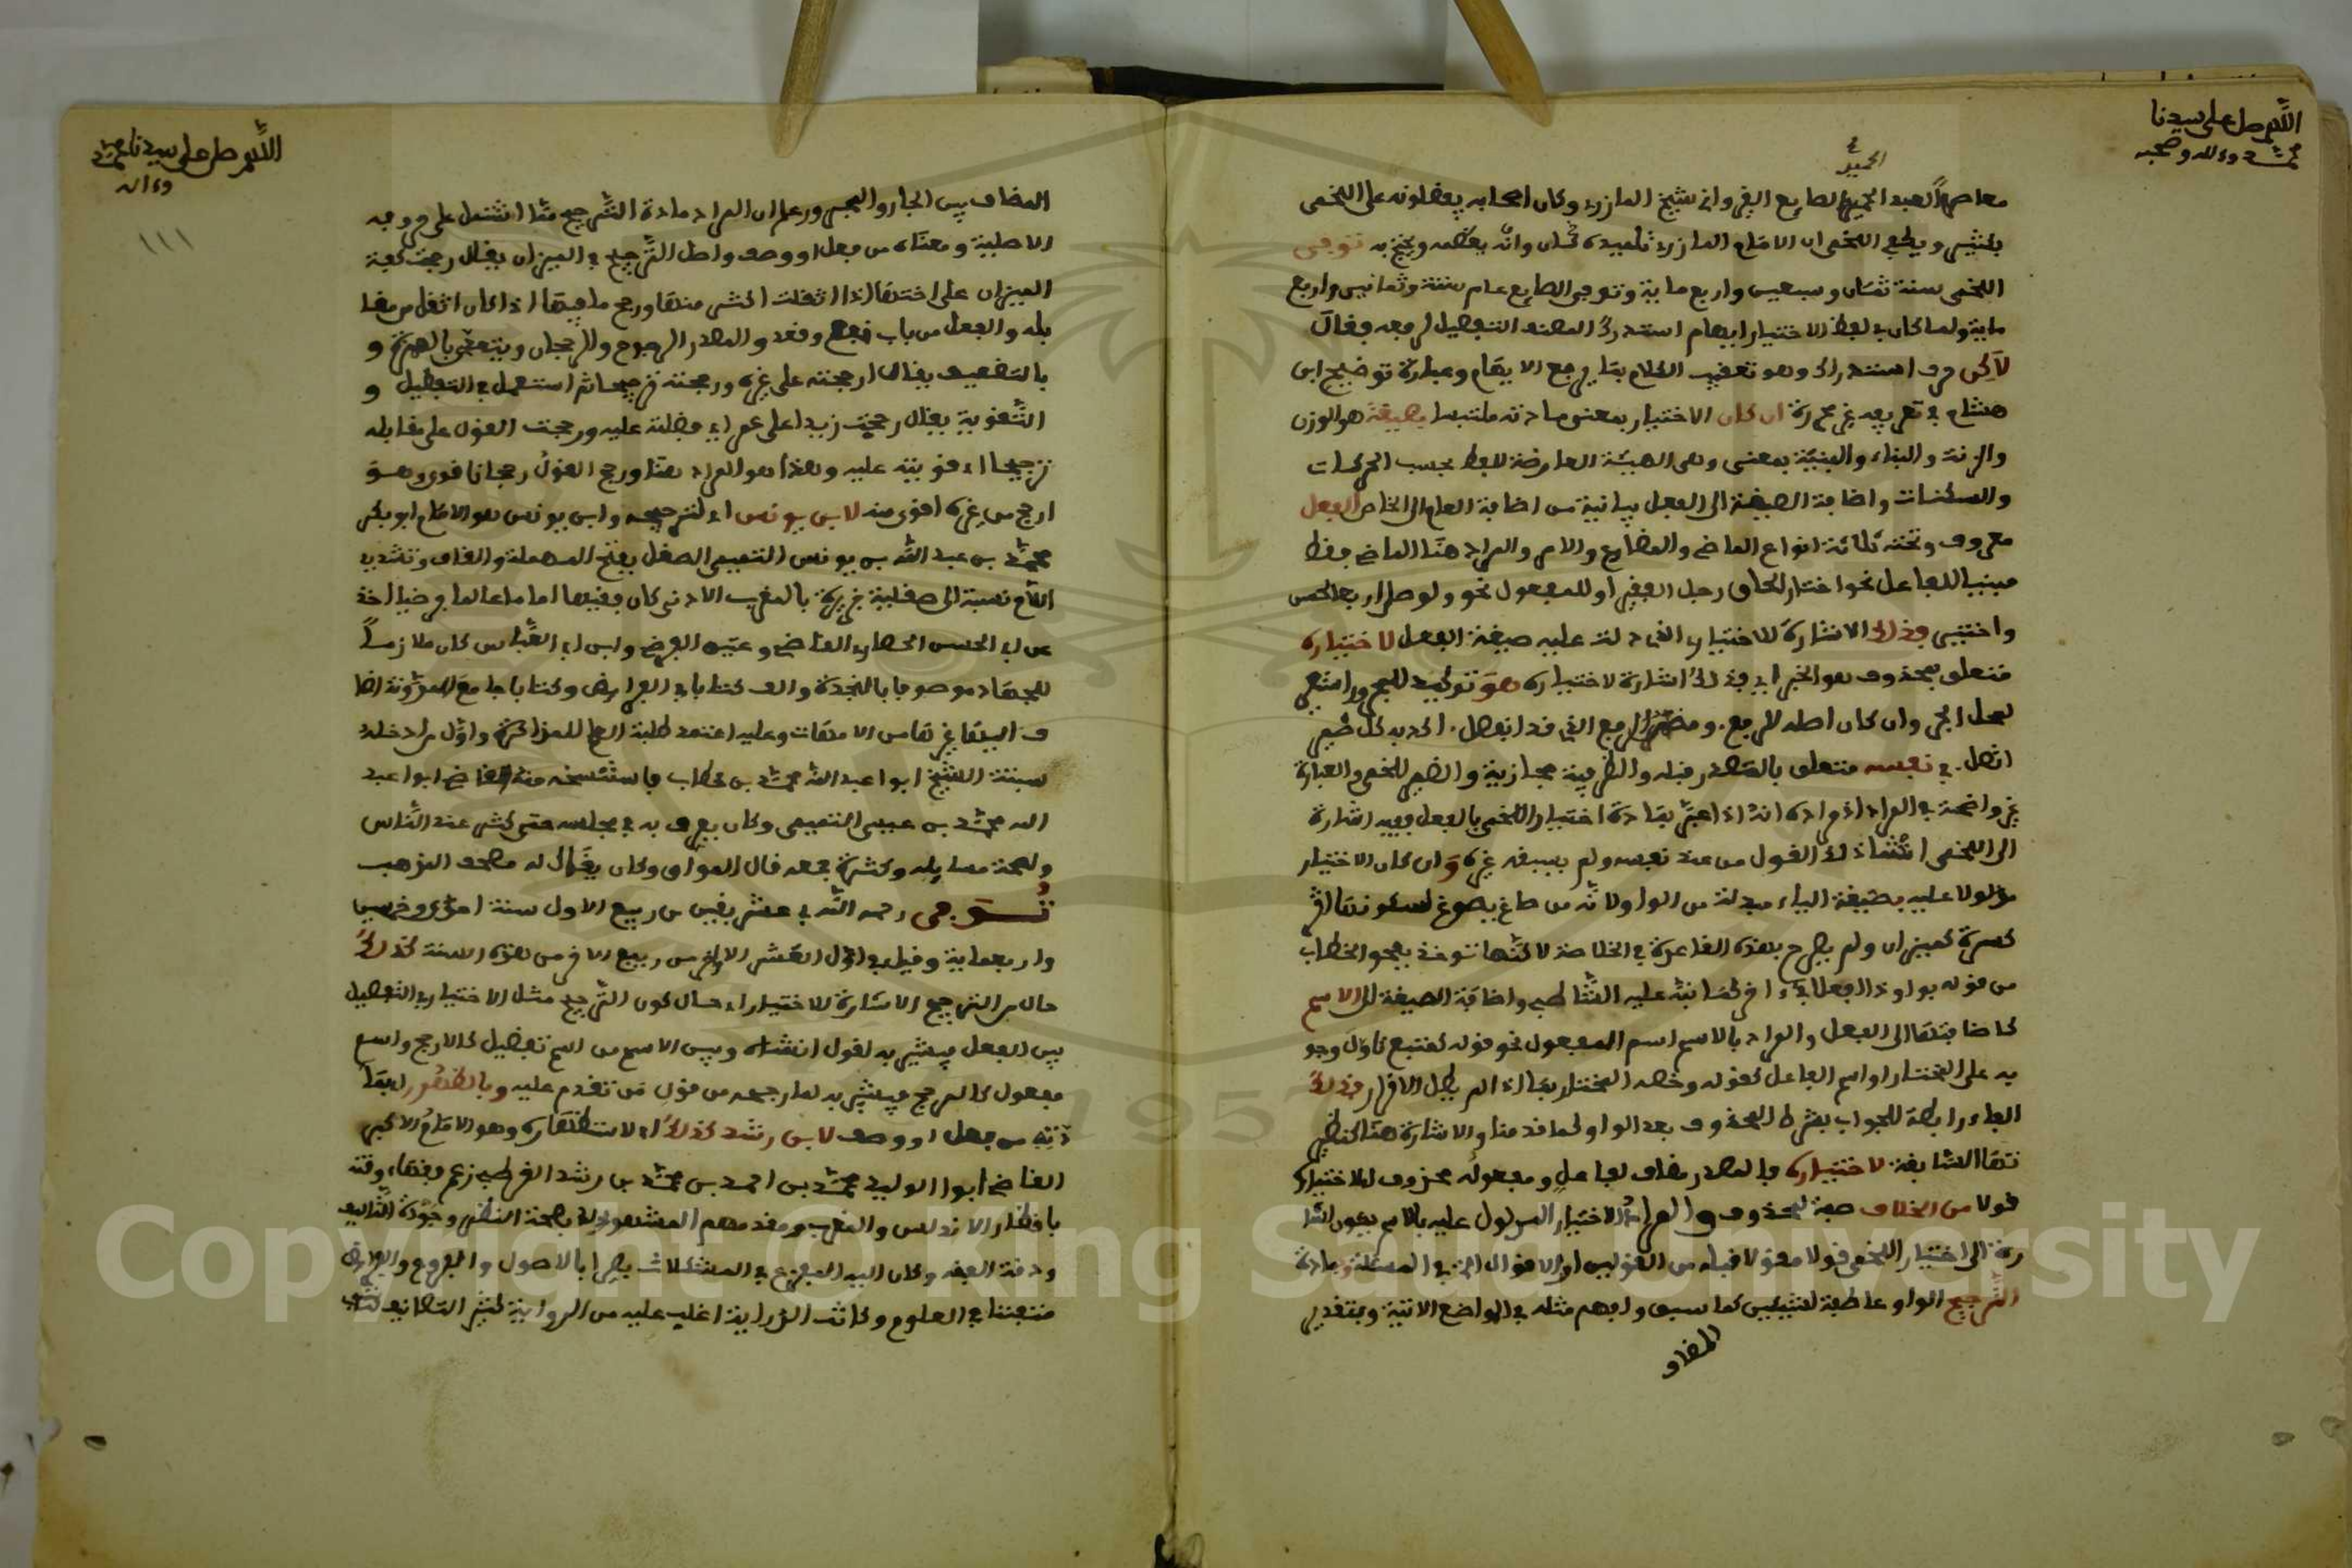 اللهم صل على سيدنا
محمد وءاله وصحبه
الحميد
معاصرا لعبد الحميد الصايغ القيرواني شيخ المازري وكان اصحابه يفضلونه على اللخمي
بكثير ويطيع اللخمي ان الامام المازري تلميذه كان وانه يعظمه ويجير به توفي
اللخمي سنة ثمان وسبعين واربع ماية وتوفي الصايغ عام ستة وثمانين واربع
ماية ولما كان في لفظ الاختيار ابهام استدرك المصنف التفصيل لرفعه فقال
لاكن حرف استدراك وهو تعقيب الكلام بما يرفع الايهام وعبارة توضيح ابن
هشام في تعريفه غير محررة ان كان الاختيار بمعنى مادته ملتبسا بصيغة هو الوزن
والزنة والبناء والبنية بمعنى وهي الهيئة العارضة للفظ بحسب الحركات
والسكنات واضافة الصيغة الى الفعل بيانية من اضافة العام الى الخاص الفعل
معروف وتحته ثلاثة انواع الماضي والمضارع والامر والمراد هنا الماضي فقط
مبنيا للفاعل نحو اختار الحاق رحل الفقير او للمفعول نحو ولو صلى اربعا لخمس
واختير فذلك الاشارة للاختيار الذي دلت عليه صيغة الفعل لاختياره
متعلق بمحذوف هو الخبر اي فذلك اشارة لاختياره هو توكيد للمجرور
لمحل الجر وان كان اصله للرفع ومضمر الرفع الذي قد انفصل اكد به كل ضمير
اتصل في نفسه متعلق بالمصدر قبله والظرفية مجازية والضمير للخمي والعبارة
غير واضحة في المراد اذ مراده انه اذا عبر بمادة اختيار اللخمي بالفعل ففيه اشارة
الى اللخمي انشا ذلك القول من عند نفسه ولم يسبقه غيره وان كان الاختيار
مدلولا عليه بصيغة الياء مبدلة من الواو لانه من صاغ يصوغ لسكونها اثر
كسرة كميزان ولم يصرح بهذه القاعدة في الخلاصة لاكنها توخذ بفحوى الخطاب
من قوله بواو ذا افعلا في اخر كما نبه عليه الشاطبي واضافة الصيغة الى الاسم
كاضافتها الى الفعل والمراد بالاسم اسم المفعول نحو قوله كمتبع تاول وجو
به على المختار او اسم الفاعل كقوله وخصه المختار بما اذا لم يطل الاقرار فذلك
الفاء رابطة للجواب بشرط المحذوف بعد الواو كما قدمنا والاشارة هنا كنظير
تها السابقة لاختياره فالمصدر مضاف لفاعله ومفعوله محذوف اي لاختياره
قولا من الخلاف صفة لمحذوف والمراد الاختيار المدلول عليه بالاسم يكون اشا
رة الى اختيار اللخمي قولا مقولا قبله من القولين او الاقوال التي في المسئلة وبمادة
الترجيح الواو عاطفة لشيئين كما سبق وافهم مثله في المواضع الاتية وبتقدير
المضاف
اللهم صل على سيدنا محمد
وءاله
١١١
المضاف بين الجار والمجرور علم ان المراد مادة الترجيح مما اشتمل على حروفه
الاصلية ومعناه من فعل او وصف واصل الترجيح في الميزان يقال رجحت كفة
الميزان على اختها اذا ثقلت اكثر منها ورجح ما فيها اذا كان اثقل من مقا
بله والفعل من باب نفع وقعد والمصدر الرجوح والرجحان ويتعدى بالهمزة و
بالتضعيف يقال ارجحته على غيره ورجحته ترجيحا ثم استعمل في التفضيل و
التقوية يقال رجحت زيدا على عمر اي فضلته عليه ورجحت القول على مقابله
ترجيحا اي قويته عليه وهذا هو المراد هنا ورجح القول رجحانا قوي وهو
ارجح من غيره اقوى منه لابن يونس اي لترجيحه وابن يونس هو الامام ابو بكر
محمد بن عبد الله بن يونس التميمي الصقلي بفتح المهملة والقاف وتشديد
اللام نسبة الى صقلية جزيرة بالمغرب الادنى كان فقيها اماما عالما فرضيا اخذ
عن ابي الحسن الحصاري القاضي وعتيق الفرضي وابن ابي العباس كان ملازما
للجهاد موصوفا بالنجدة والف كتابا في الفرايض وكتابا جامع المدونة اضا
ف اليها غيرها من الامهات وعليه اعتمد طلبة العلم للمذاكرة واول من ادخله
سبتة الشيخ ابوا عبد الله محمد بن خطاب فاستنسخه منه القاضي ابوا عبد
الله محمد بن عيسى التميمي وكان يعرف به في مجلسه حتى كثر عند الناس
ولصحة مسايله وكثرة جمعه قال المواق وكان يقال له مصحف المذهب
توفي رحمه الله في عشر بقين من ربيع الاول سنة احدى وخمسين
واربعماية وقيل في اول العشر الاواخر من ربيع الاخر من هذه السنة كذلك
حال من الترجيح الاشارة للاختيار اي حال كون الترجيح مثل الاختيار في التفصيل
بين الفعل فيشير به لقول انشاه وبين الاسم من اسم تفضيل كالارجح واسم
مفعول كالمرجح فيشير به لما رجحه من قول من تقدم عليه وبالظهور ايضا
ءاته من فعل او وصف لابن رشد كذلك اي لاستظهاره وهو الامام الاكبر
القاضي ابوا الوليد محمد بن احمد بن محمد بن رشد القرطبي زعيم فقهاء وقته
باقطار الاندلس والمغرب ومقدمهم المشهور له بصحة النظر وجودة التاليف
ودقة الفقه وكان اليه المفزع في المشكلات بصيرا بالاصول والفروع والفرايض
متفننا في العلوم وكانت الدراية اغلب عليه من الرواية كثير التصانيف